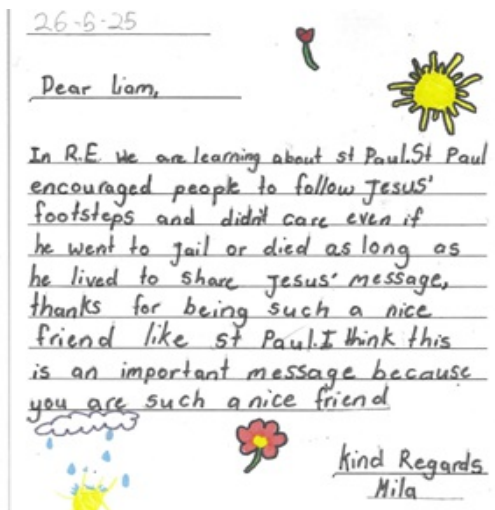 26-5-25
Dear Liam,
In R.E. we are learning about st Paul.St Paul
encouraged people to follow Jesus'
footsteps and didn't care even if
he went to Jail or died as long as
he lived to share Jesus' message,
thanks for being such a nice
friend like st Paul.I think this
is an important message because
you are such a nice friend
Kind Regards
Mila